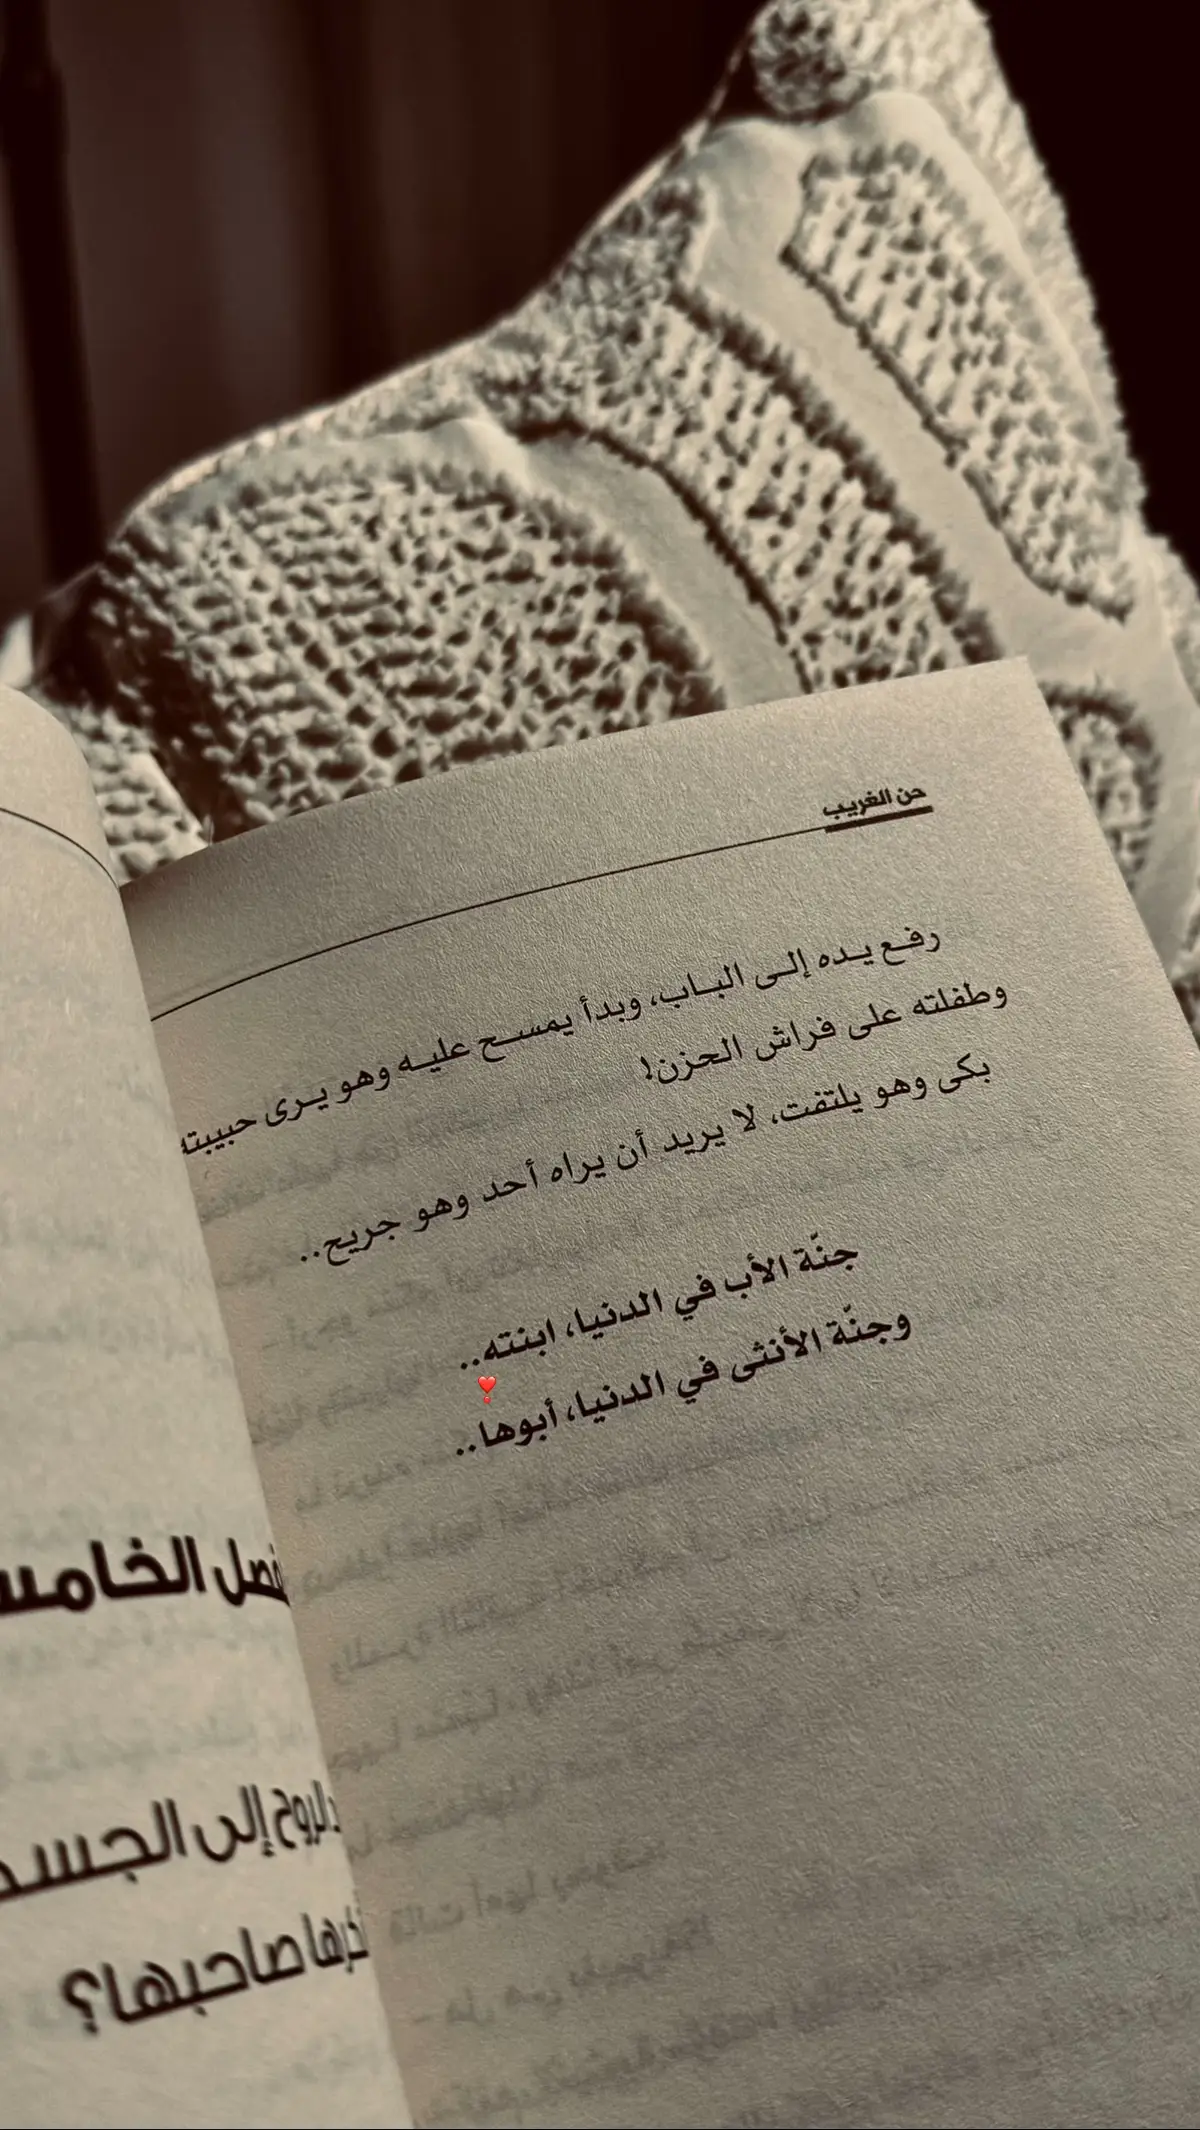 حن الغريب
رفع يده إلى الباب، وبدأ يمسح عليه وهو يرى حبيبته
وطفلته على فراش الحزن!
بكى وهو يلتفت، لا يريد أن يراه أحد وهو جريح..
جنّة الأب في الدنيا، ابنته..
وجنّة الأنثى في الدنيا، أبوها..
فصل الخامس
الروح إلى الجسد
صاحبها؟